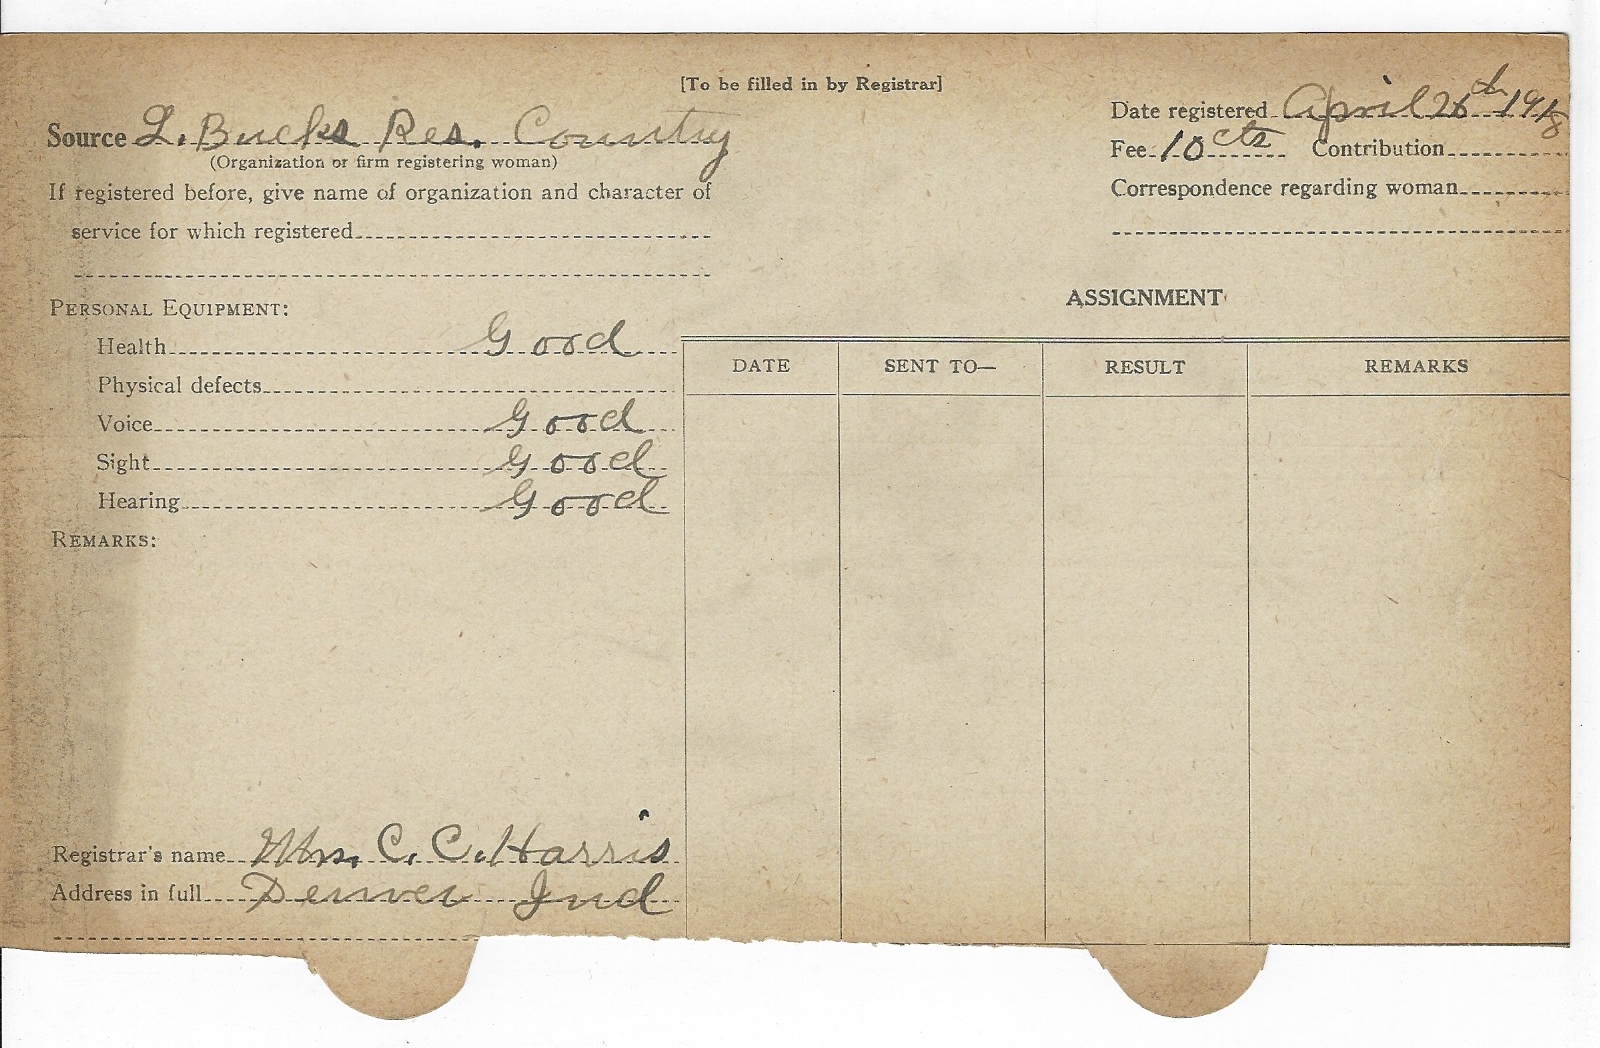 [To be filled in by Registrar]
Source L. Bucks Res. Country
(Organization or firm registering woman)
If registered before, give name of organization and character of
service for which registered
Date registered April 26th 1918
Fee 10 cts Contribution
Correspondence regarding woman
PERSONAL EQUIPMENT:
Health Good
Physical defects
Voice Good
Sight Good
Hearing Good
REMARKS:
ASSIGNMENT
DATE SENT TO— RESULT REMARKS
Registrar's name Mrs. C. C. Harris
Address in full Denver Ind